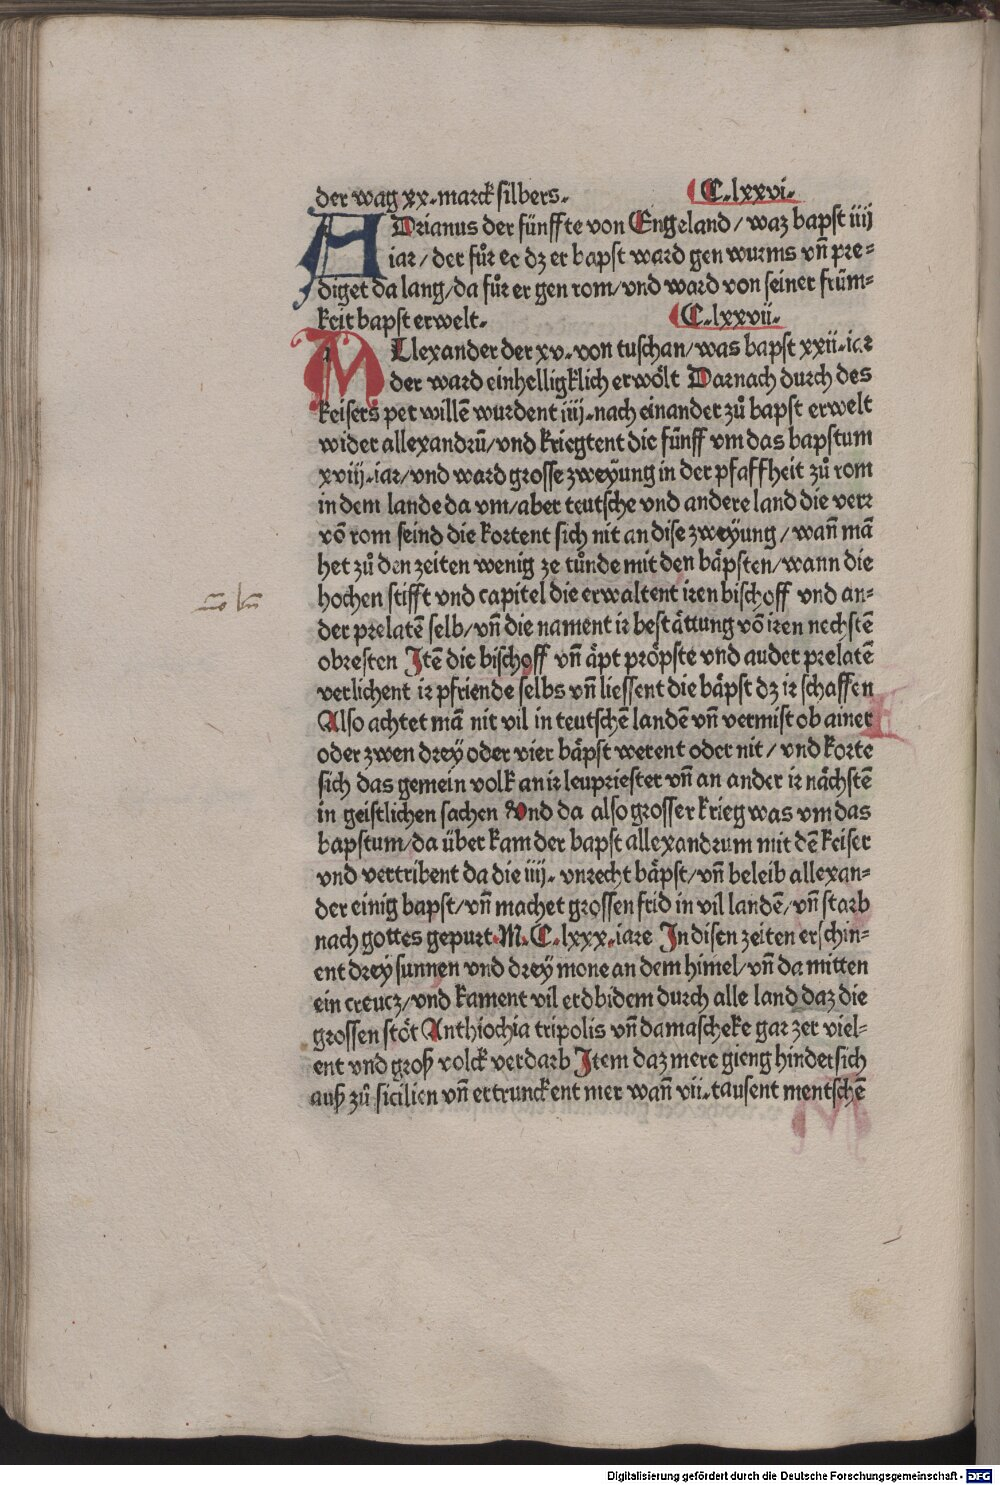 der wag xx. marck silbers. C. lxxvi.
ADrianus der fünffte von Engeland / waz bapst iiij
iar / der fůr ee dz er bapst ward gen wurms vn̄ pre⸗
diget da lang / da fůr er gen rom / vnd ward von seiner frūm⸗
keit bapst erwelt. C. lxxvii.
MLlexander der xv. von tuschan / was bapst xxii. iar
der ward einhelligklich erwőlt Darnach durch des
keisers pet willē wurdent iiij. nach einander zů bapst erwelt
wider allexandrū / vnd kriegtent die fünff vm das bapstum
xviij. iar / vnd ward grosse zweyüng in der pfaffheit zů rom
in dem lande da vm / aber teutsche vnd andere land die verr
vō rom seind die kortent sich nit an dise zweyüng / wan̄ mā
het zů den zeiten wenig ze tůnde mit den bäpsten / wann die
hochen stifft vnd capitel die erwaltent iren bischoff vnd an⸗
der prelatē selb / vn̄ die nament ir bestättung vō iren nechstē
obresten Itē die bischoff vn̄ äpt pröpste vnd auder prelatē
verlichent ir pfriende selbs vn̄ liessent die bäpst dz ir schaffen
Also achtet mā nit vil in teutschē landē vn̄ vermist ob ainer
oder zwen drey oder vier bäpst werent oder nit / vnd korte
sich das gemein volk an ir leupriester vn̄ an ander ir nächstē
in geistlichen sachen Vnd da also grosser krieg was vm das
bapstum / da über kam der bapst allexandrum mit dē keiser
vnd vertribent da die iiij. vnrecht bäpst / vn̄ beleib allexan⸗
der einig bapst / vn̄ machet grossen frid in vil landē / vn̄ starb
nach gottes gepurt. M. C. lxxx. iare In disen zeiten erschin⸗
ent drey sunnen vnd drey mone an dem himel / vn̄ da mitten
ein creucz / vnd kament vil erdbidem durch alle land daz die
grossen stöt Anthiochia tripolis vn̄ damascheke gar zer viel⸗
ent vnd groß volck verdarb Item daz mere gieng hinder sich
auß zů sicilien vn̄ ertrunckent mer wan̄ vii. tausent mentschē
Digitalisierung gefördert durch die Deutsche Forschungsgemeinschaft - DFG